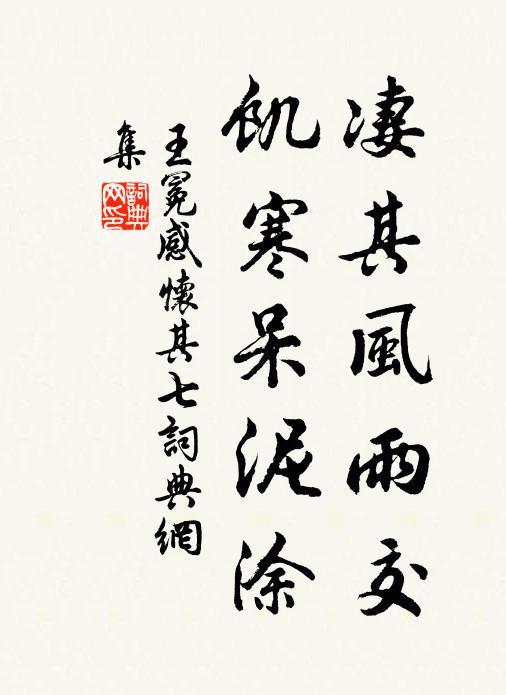 凄其風雨交
飢寒呆泥涂
王冕感懷其七詞典網
集
詞典
网印